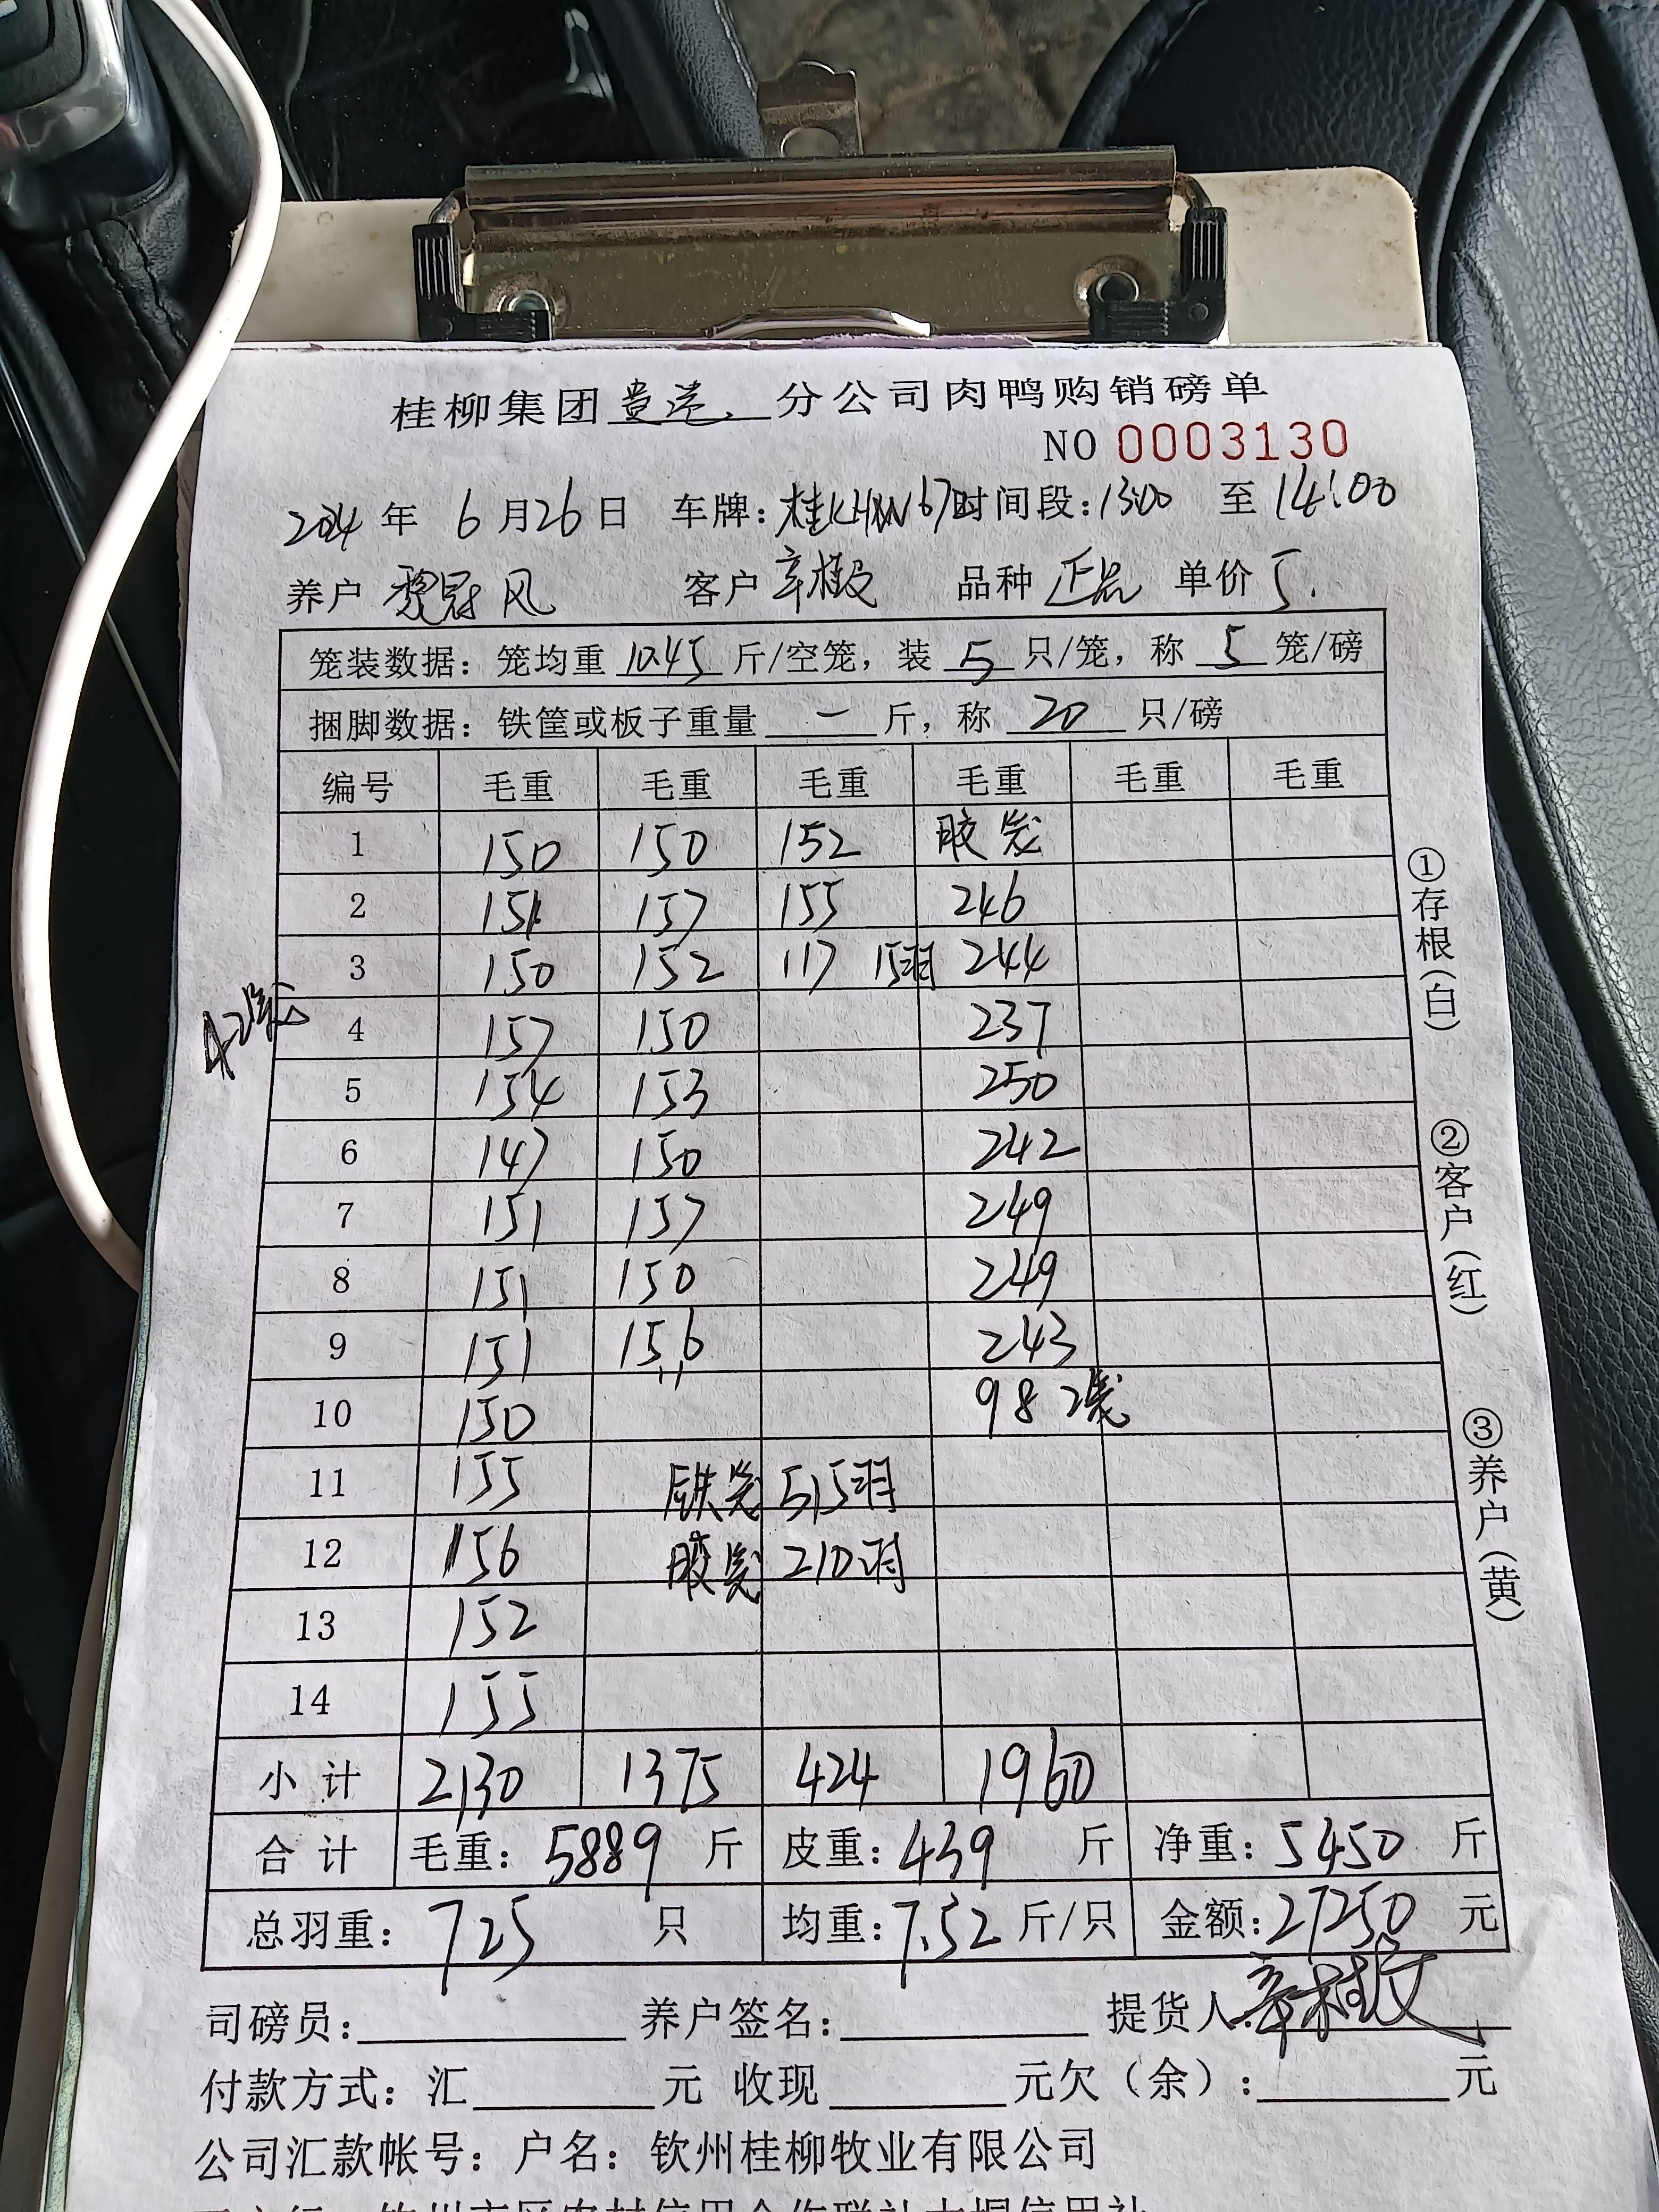 桂柳集团贵港分公司肉鸭购销磅单
NO 0003130
2024年 6月26日 车牌: 时间段:13:00 至 14:00
养户 冠风 客户 辛 品种 正品 单价 5.
笼装数据: 笼均重 10.45 斤/空笼, 装 5 只/笼, 称 5 笼/磅
捆脚数据: 铁筐或板子重量 一 斤, 称 20 只/磅
编号 毛重 毛重 毛重 毛重 毛重 毛重
1 150 150 152 胶笼
2 151 157 155 246
3 150 152 117 15羽 244
4 157 150 237
5 154 153 250
6 147 150 242
7 151 157 249
8 151 150 249
9 151 156 243
10 150 98 2笼
11 155 铁笼 515羽
12 156 胶笼 210羽
13 152
14 155
小计 2130 1375 424 1960
合计 毛重: 5889 斤 皮重: 439 斤 净重: 5450 斤
总羽重: 725 只 均重: 7.52 斤/只 金额: 27250 元
司磅员: 养户签名: 提货人:
付款方式: 汇 元 收现 元欠(余): 元
公司汇款帐号: 户名: 钦州桂柳牧业有限公司
42笼
①存根(白)
②客户(红)
③养户(黄)